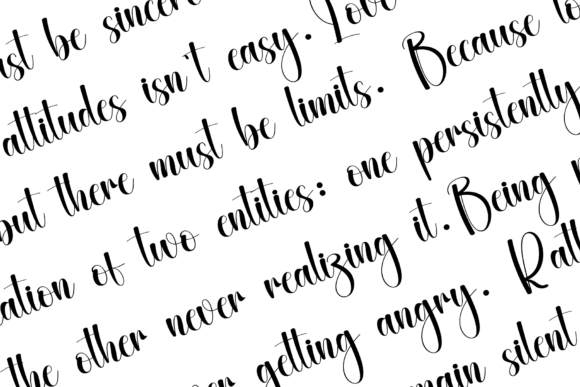 be sincere
attitudes isn't easy. Love
but there must be limits. Because
ation of two entities: one persistently
the other never realizing it. Being
getting angry. Rath
main silent